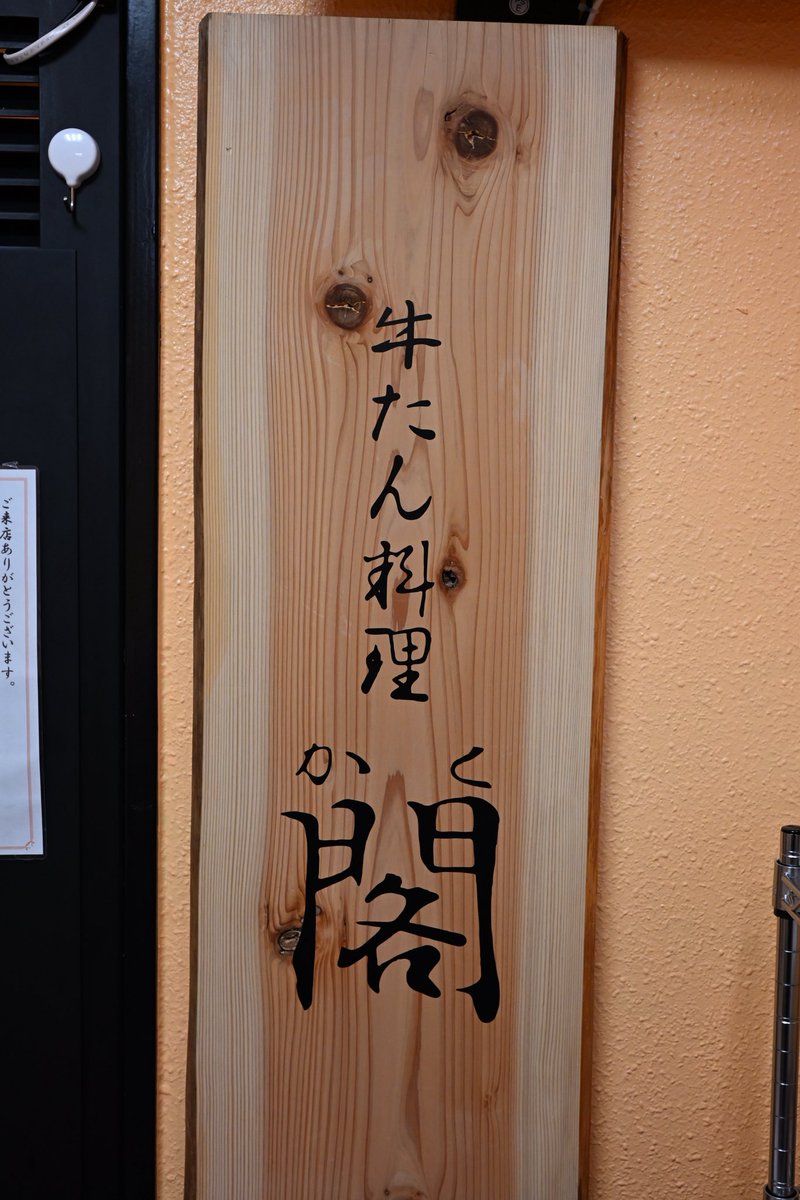 牛たん料理
かく
閣
ご来店ありがとうございます。